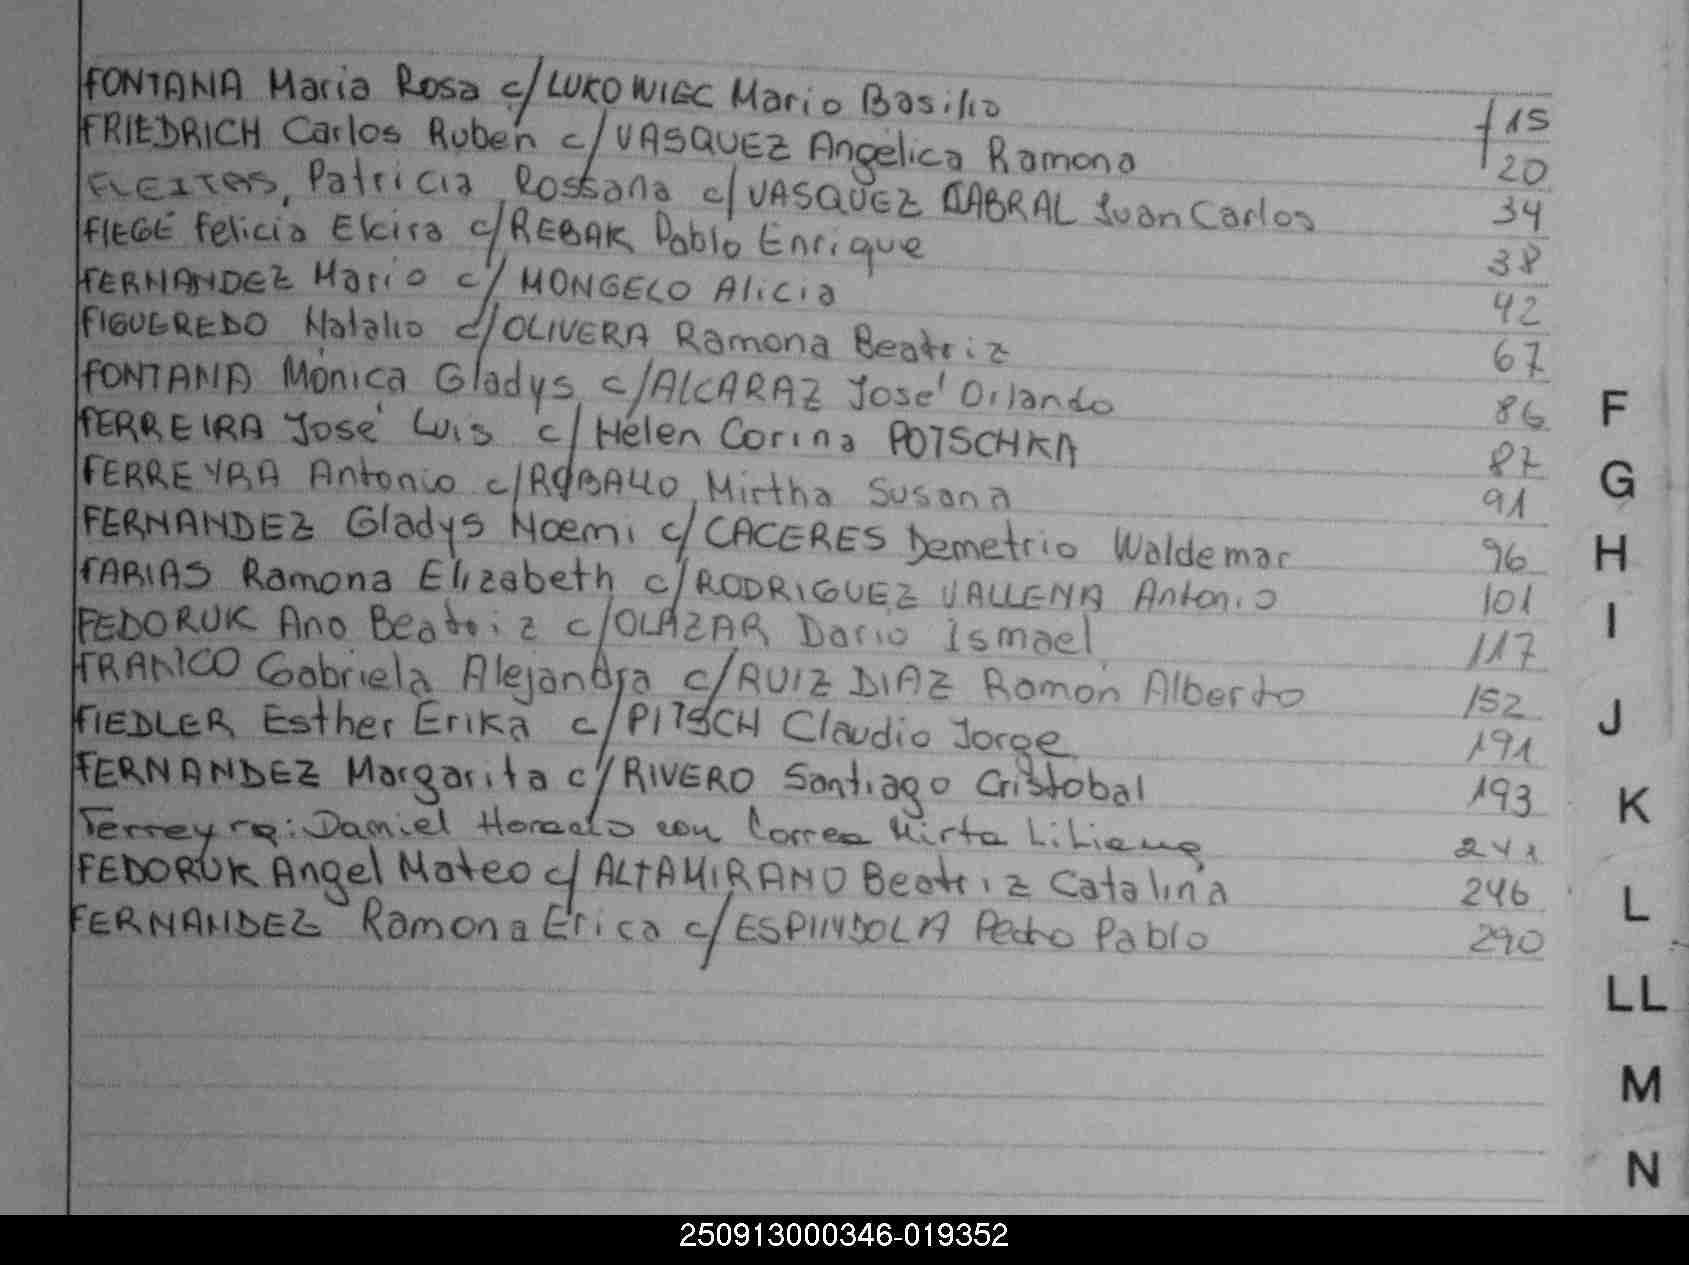 FONTANA Maria Rosa c/ LUKOWIEC Mario Basilio f 15
FRIEDRICH Carlos Rubén c/ VASQUEZ Angélica Ramona 20
FLEITAS, Patricia Rossana c/ VASQUEZ CABRAL Juan Carlos 34
FIEGE Felicia Elcira c/ REBAK Pablo Enrique 38
FERNANDEZ Mario c/ MONGELO Alicia 42
FIGUEREDO Natalio c/ OLIVERA Ramona Beatriz 67
FONTANA Mónica Gladys c/ ALCARAZ José Orlando 86
FERREIRA José Luis c/ Helen Corina POTSCHKA 87
FERREYRA Antonio c/ ROBALLO Mirtha Susana 91
FERNANDEZ Gladys Noemi c/ CACERES Demetrio Waldemar 96
FARIAS Ramona Elizabeth c/ RODRIGUEZ VALLENA Antonio 101
FEDORUK Ana Beatriz c/ OLAZAR Dario Ismael 117
FRANCO Gabriela Alejandra c/ RUIZ DIAZ Ramón Alberto 152
FIEDLER Esther Erika c/ PITSCH Claudio Jorge 191
FERNANDEZ Margarita c/ RIVERO Santiago Cristobal 193
Ferreyra: Daniel Horacio con Correa Mirta Liliana 241
FEDORUK Angel Mateo c/ ALTAMIRANO Beatriz Catalina 246
FERNANDEZ Ramona Erica c/ ESPINDOLA Pedro Pablo 290
F
G
H
I
J
K
L
LL
M
N
250913000346-019352